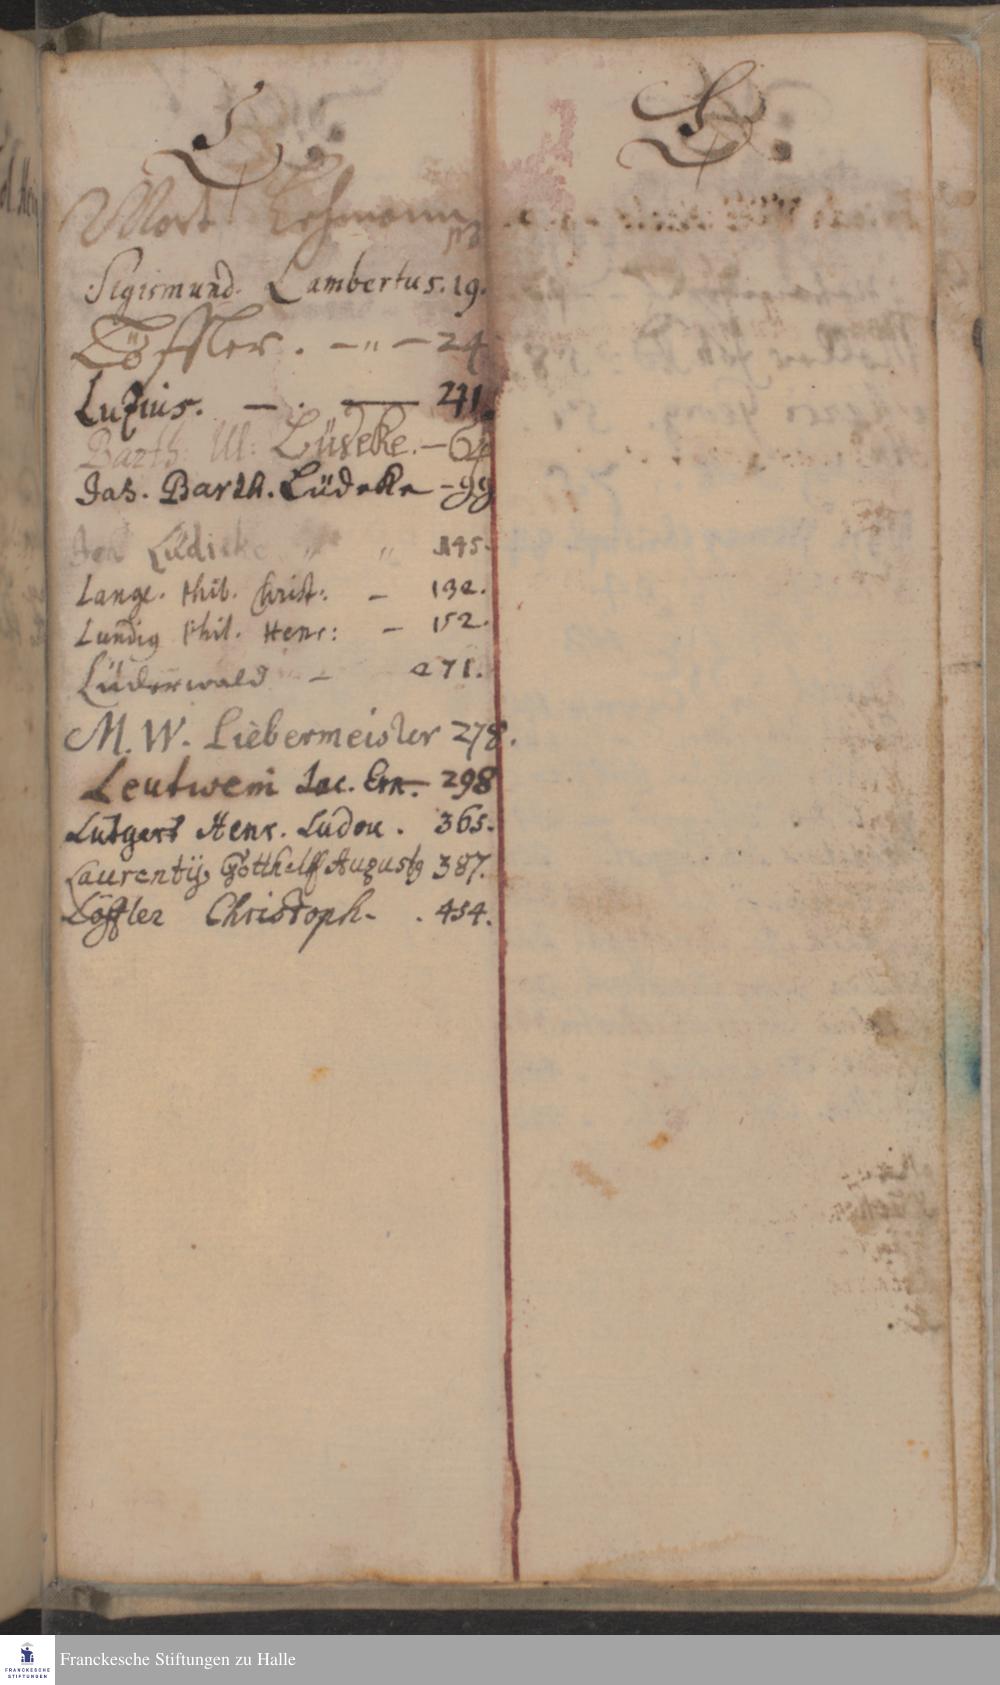 L
Mort Lehmann
113
Sigismund. Lambertus. 19.
Löffler. — " — 24
Luzius. — . — 241.
Barth: Ul: Lüdeke. — 64
Jah. Barth. Lüdeke — 99
Joh Lüdicke " " 145.
Lange. Phil. Christ: — 132.
Lundig Phil. Henr: — 152.
Lüderwald — 271.
M. W. Liebermeister 278.
Leutwein Jac. Ern. 298
Lütgert Henr. Ludou. 365.
Laurentij Gotthelff August 387.
Löffler Christoph. . 454.
FRANCKESCHE
STIFTUNGEN
Franckesche Stiftungen zu Halle